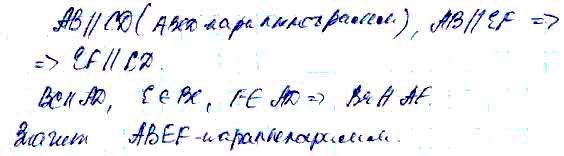 AB||CD (ABCD параллелограмм), AB||EF =>
=> EF||CD.
BC||AD, E∈BC, F∈AD => BE||AF.
Значит ABEF - параллелограмм.